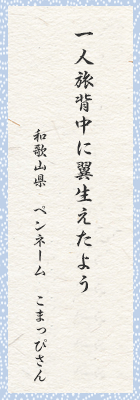 一人旅背中に翼生えたよう
和歌山県　ペンネーム　こまっぴさん